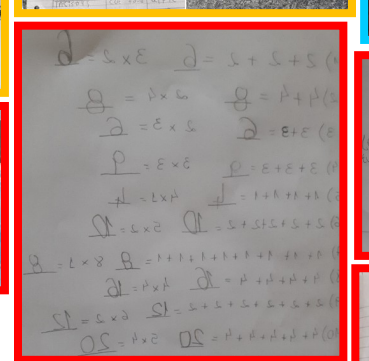 1) 2 + 2 + 2 = 6   3 x 2 = 6
2) 4 + 4 = 8   2 x 4 = 8
3) 3 + 3 = 6   2 x 3 = 6
4) 3 + 3 + 3 = 9   3 x 3 = 9
5) 1 + 1 + 1 + 1 = 4   4 x 1 = 4
6) 2 + 2 + 2 + 2 + 2 = 10   5 x 2 = 10
7) 1 + 1 + 1 + 1 + 1 + 1 + 1 + 1 = 8   8 x 1 = 8
8) 4 + 4 + 4 + 4 = 16   4 x 4 = 16
9) 2 + 2 + 2 + 2 + 2 + 2 = 12   6 x 2 = 12
10) 4 + 4 + 4 + 4 + 4 = 20   5 x 4 = 20